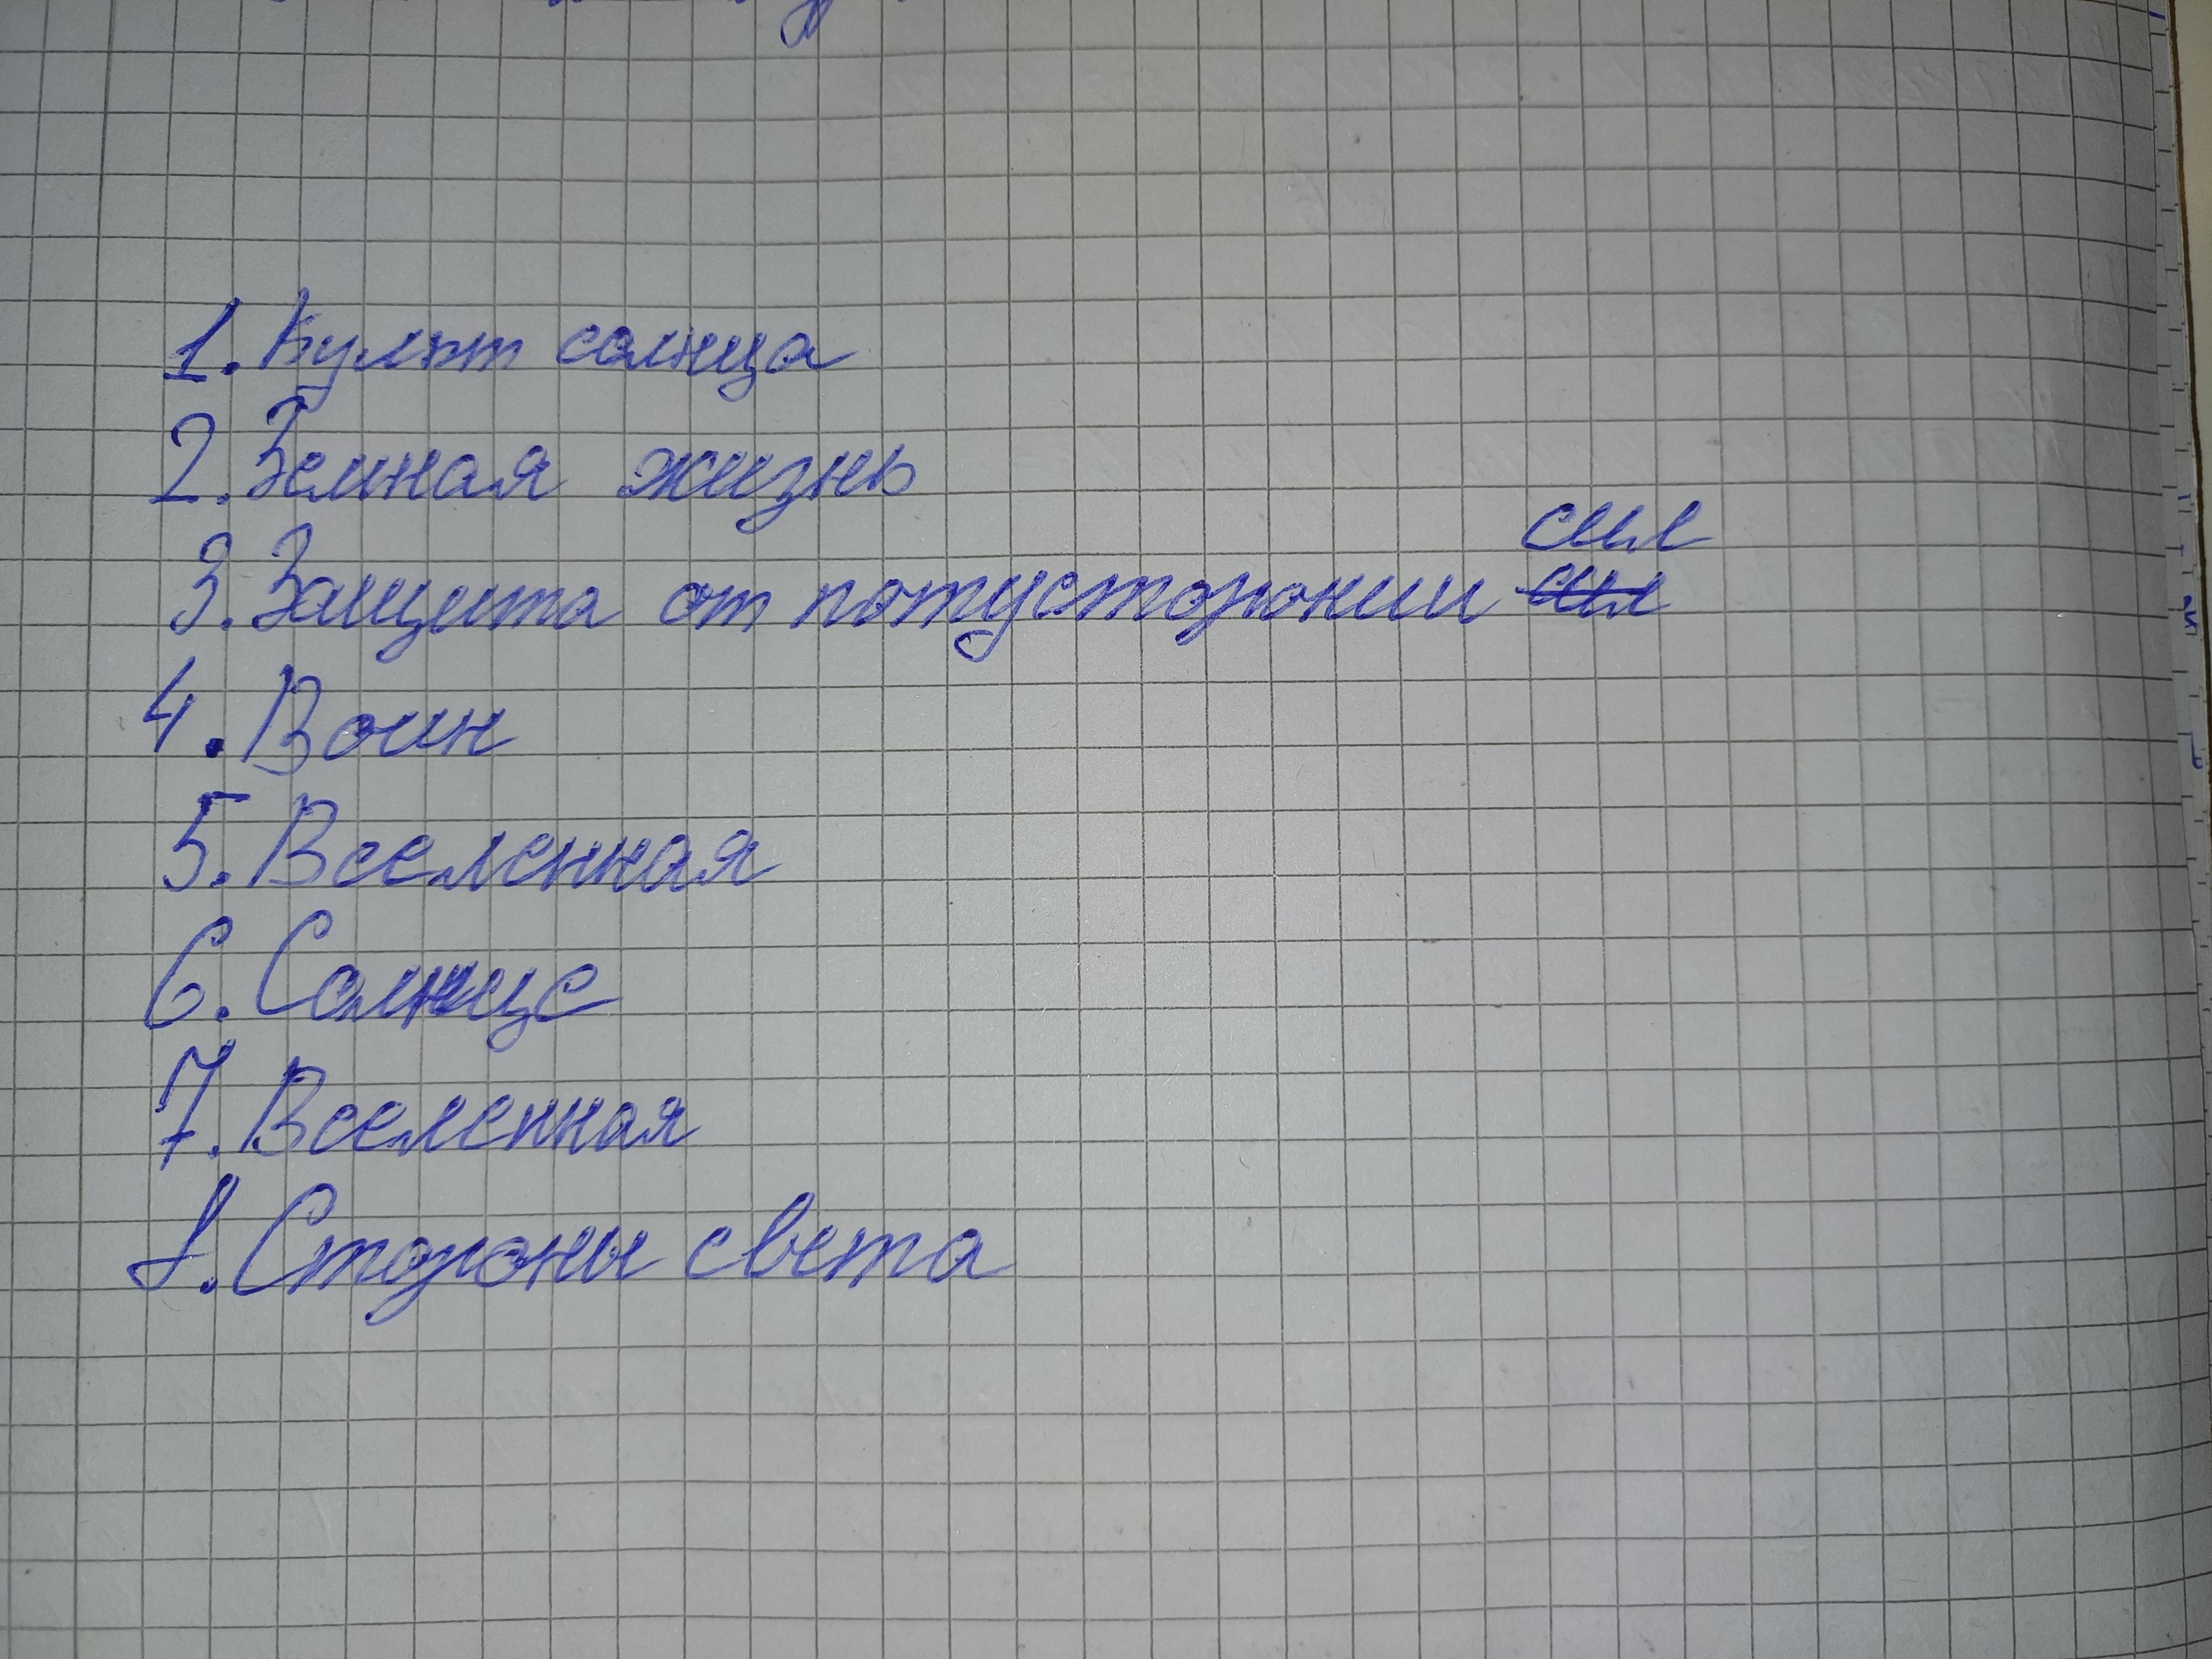 1. Культ солнца
2. Земная жизнь
3. Защита от потусторонии сил
4. Воин
5. Вселенная
6. Солнце
7. Вселенная
8. Стороны света